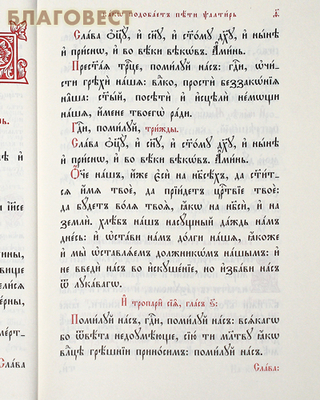 БЛАГОВЕСТ
Ка́кѡ подоба́етъ пѣ́ти ѱалти́рь
Сла́ва ѻ҆ц҃ꙋ̀, и҆ сн҃ꙋ, и҆ ст҃о́мꙋ дх҃ꙋ, и҆ ны́нѣ
и҆ при́снѡ, и҆ во вѣ́ки вѣкѡ́въ. А҆ми́нь.
Прест҃а́ѧ трⷪ҇це, поми́лꙋй на́съ: гдⷭ҇и, ѡ҆чи́-
сти грѣхѝ на́шѧ: влⷣко, простѝ беззакѡ́нїѧ
на̑ша: ст҃ы́й, посѣтѝ и҆ и҆сцѣлѝ не́мѡщи
на́шѧ, и҆́мене твоегѡ̀ ра́ди.
Гдⷭ҇и, поми́лꙋй, три́жды.
Сла́ва ѻ҆ц҃ꙋ̀, и҆ сн҃ꙋ, и҆ ст҃о́мꙋ дх҃ꙋ, и҆ ны́нѣ
и҆ при́снѡ, и҆ во вѣ́ки вѣкѡ́въ. А҆ми́нь.
Ѻ҆́ч҃е на́шъ, и҆́же є҆сѝ на нб҃сѣ́хъ, да ст҃и́т-
сѧ и҆́мѧ твоѐ, да прїи́детъ црⷭ҇твїе твоѐ:
да бꙋ́детъ во́лѧ твоѧ̀, ꙗ҆́кѡ на нб҃сѝ, и҆ на
землѝ. хлѣ́бъ на́шъ насꙋ́щный да́ждь на́мъ
дне́сь: и҆ ѡ҆ста́ви на́мъ до́лги на́шѧ, ꙗ҆́коже
и҆ мы̀ ѡ҆ставлѧ́емъ должникѡ́мъ на́шымъ: и҆
не введѝ на́съ во и҆скꙋше́нїе, но и҆зба́ви на́съ
ѿ лꙋка́вагѡ.
И҆ тропарѝ сїѧ̑, гла́съ ѕ҃:
Поми́лꙋй на́съ, гдⷭ҇и, поми́лꙋй на́съ: всѧ́кагѡ
бо ѿвѣ́та недоꙋмѣ́юще, сїю́ ти мл҃твꙋ ꙗ҆́кѡ
влⷣцѣ грѣ́шнїи прино́симъ: поми́лꙋй на́съ.
Сла́ва:
Сла́ва